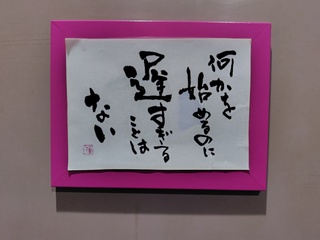 何かを
始めるのに
遅すぎる
ことは
ない